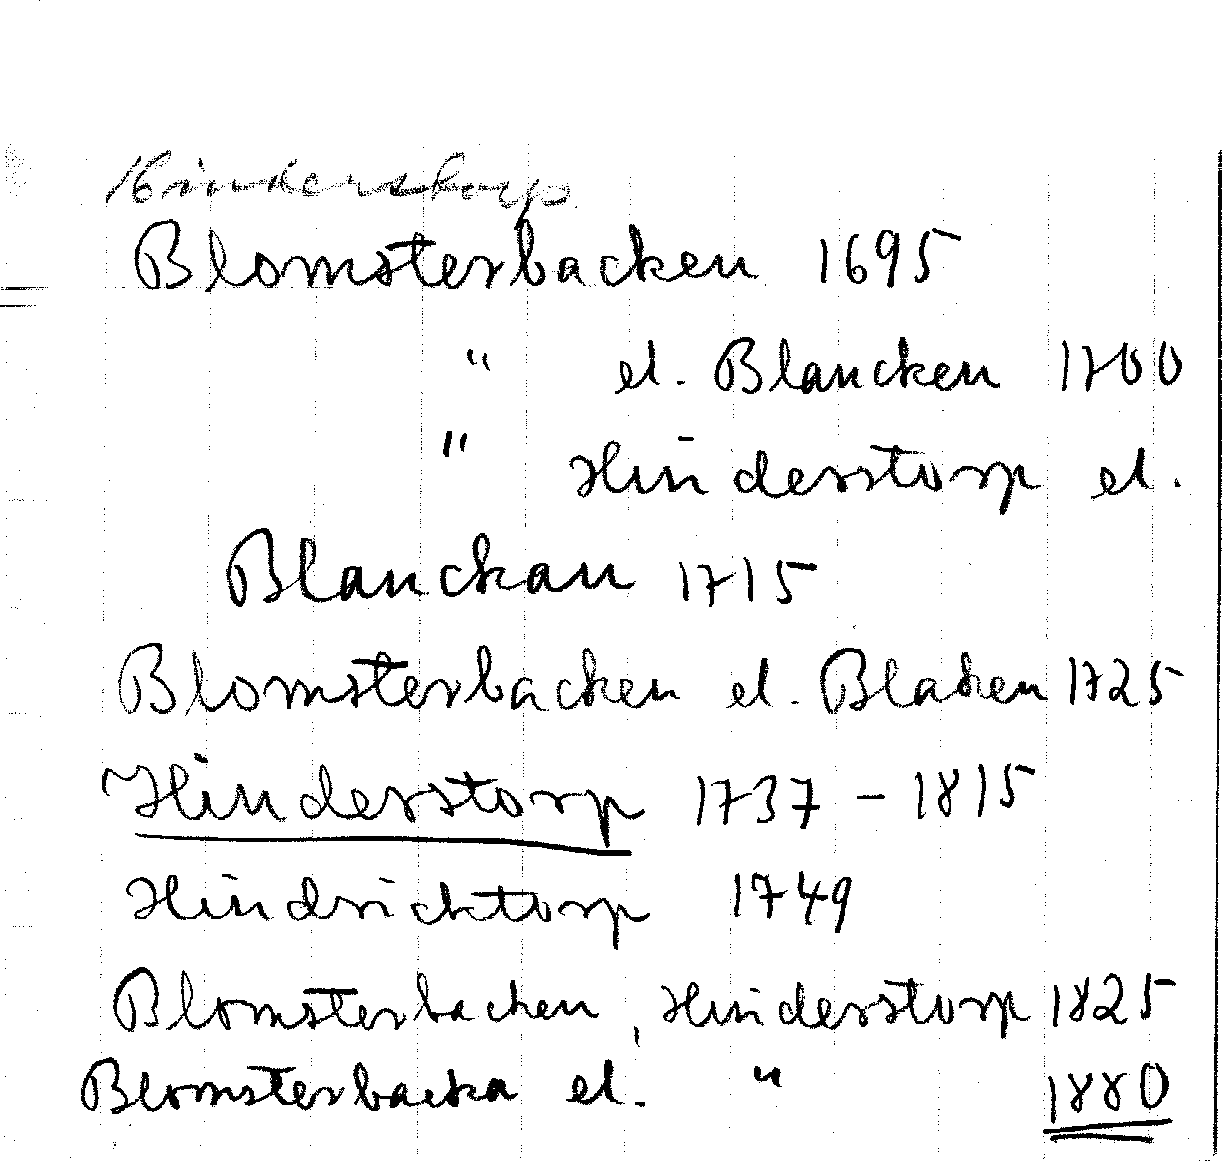 Hinderstorp
Blomsterbacken 1695
" el. Blancken 1700
" Hinderstorp el.
Blanckan 1715
Blomsterbacken el. Blaken 1725
Hinderstorp 1737 - 1815
Hindricktorp 1749
Blomsterbacken, Hinderstorp 1825
Blomsterbacka el. " 1880